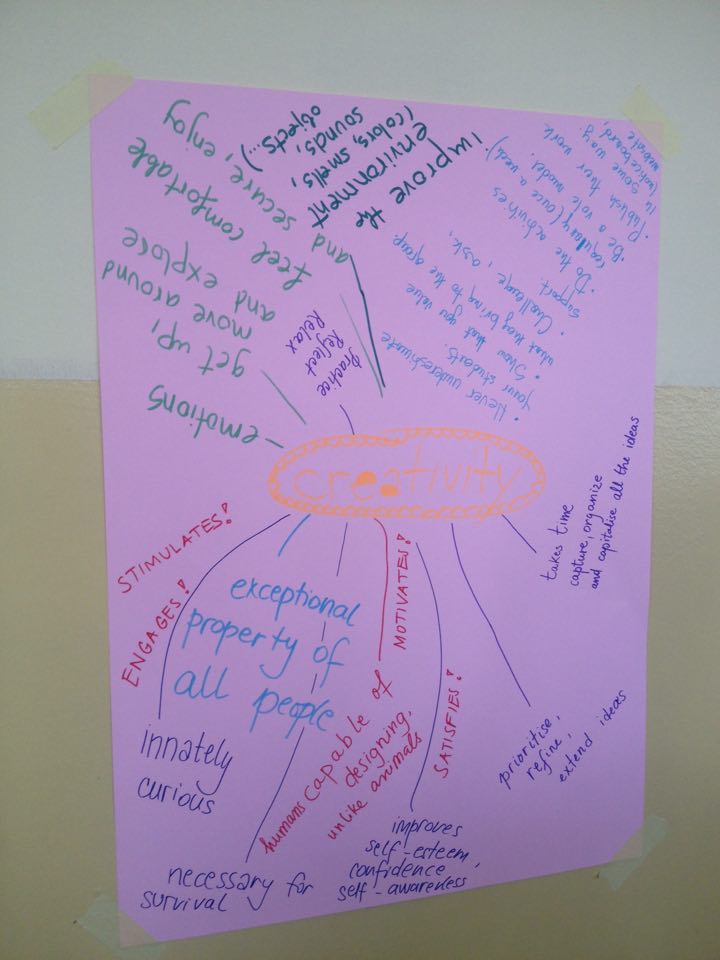 creativity
STIMULATES!
ENGAGES!
exceptional
property of
all people
MOTIVATES!
SATISFIES!
takes time
capture, organize
and capitalise all the ideas
prioritise,
refine,
extend ideas
innately
curious
humans capable of
designing,
unlike animals
necessary for
survival
improves
self-esteem,
confidence,
self-awareness
- emotions
get up,
move around
and explore
feel comfortable
and secure, enjoy
Practice
Reflect
Relax
improve the
environment
(colors, smells,
sounds,
objects...)
• Never underestimate
your students.
• Show that you value
what they bring to the group
• Challenge, ask,
support.
• Do the activities
regulary (once a week)
• Be a role model.
• Publish their work
in some way.
(noticeboard,
website